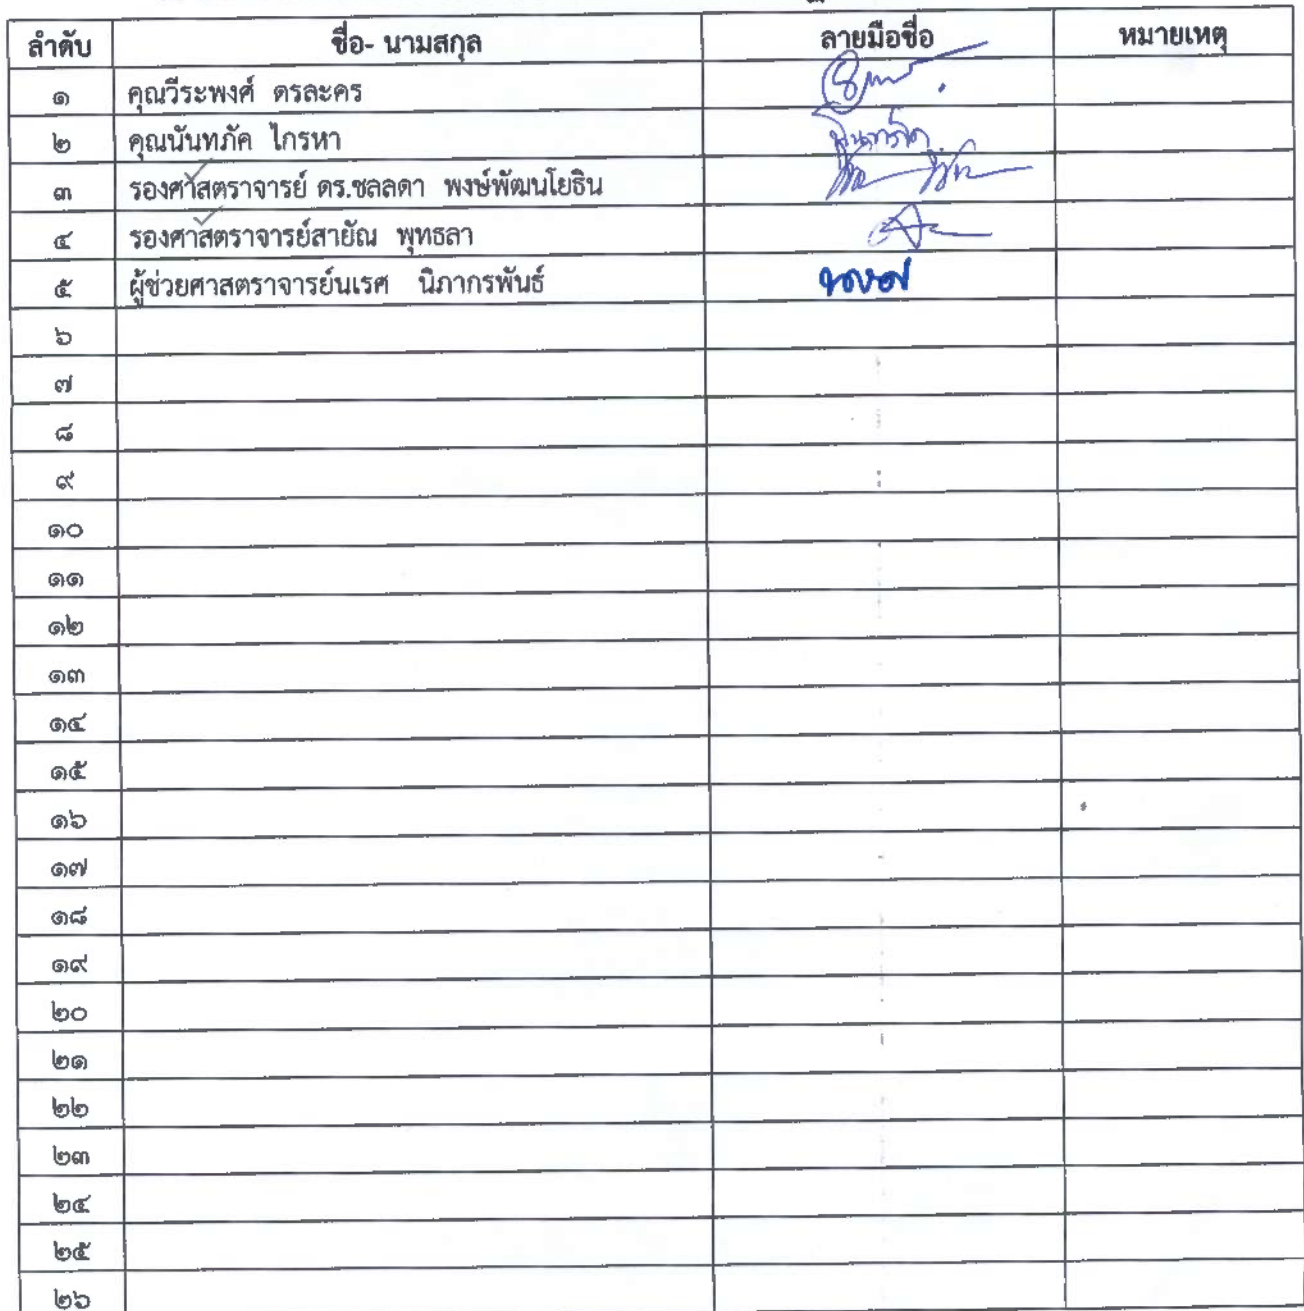 ลำดับ ชื่อ- นามสกุล ลายมือชื่อ หมายเหตุ
๑ คุณวีระพงศ์ ดรละคร
๒ คุณนันทภัค ไกรหา นันทภัค
๓ รองศาสตราจารย์ ดร.ชลลดา พงษ์พัฒนโยธิน
๔ รองศาสตราจารย์สายัณ พุทธลา
๕ ผู้ช่วยศาสตราจารย์นเรศ นิภากรพันธ์
๖
๗
๘
๙
๑๐
๑๑
๑๒
๑๓
๑๔
๑๕
๑๖
๑๗
๑๘
๑๙
๒๐
๒๑
๒๒
๒๓
๒๔
๒๕
๒๖